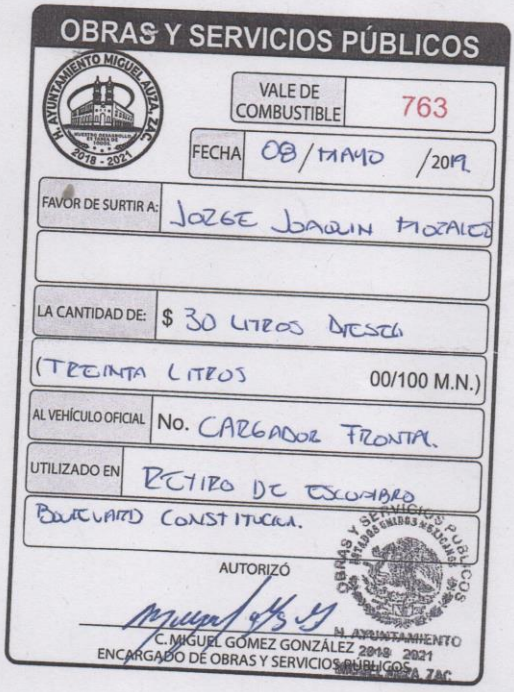 OBRAS Y SERVICIOS PÚBLICOS
H. AYUNTAMIENTO MIGUEL AUZA, ZAC.
NUESTRO DESARROLLO
ES TAREA DE
TODOS
2018 - 2021
VALE DE COMBUSTIBLE 763
FECHA 08/MAYO /2019.
FAVOR DE SURTIR A: JORGE JOAQUIN MORALES
LA CANTIDAD DE: $ 30 LITROS DIESEL
(TREINTA LITROS 00/100 M.N.)
AL VEHÍCULO OFICIAL No. CARGADOR FRONTAL.
UTILIZADO EN RETIRO DE ESCOMBRO
BOULEVARD CONSTITUCION.
AUTORIZÓ
C. MIGUEL GÓMEZ GONZÁLEZ
ENCARGADO DE OBRAS Y SERVICIOS PÚBLICOS
OBRAS Y SERVICIOS PUBLICOS
ESTADOS UNIDOS MEXICANOS
H. AYUNTAMIENTO
2018 2021
MIGUEL AUZA, ZAC.